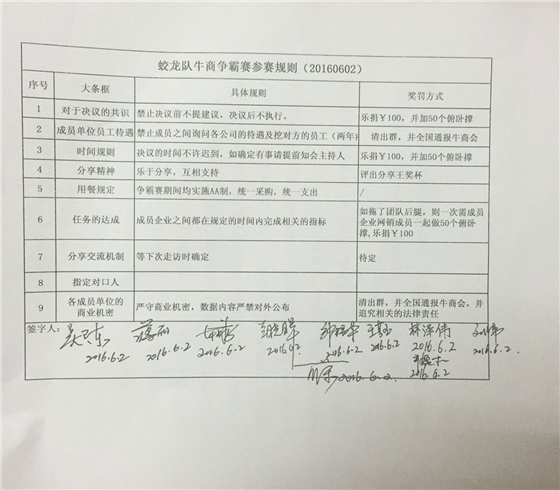 蛟龙队牛商争霸赛参赛规则（20160602）
序号 大条框 具体规则 奖罚方式
1 对于决议的共识 禁止决议前不提建议，决议后不执行， 乐捐￥100，并加50个俯卧撑
2 成员单位员工待遇 禁止成员之间询问各公司的待遇及挖对方的员工（两年内 清出群，并全国通报牛商会
3 时间规则 决议的时间不许迟到，如确定有事请提前知会主持人 乐捐￥100，并加50个俯卧撑
4 分享精神 乐于分享，互相支持 评出分享王奖杯
5 用餐规定 争霸赛期间均实施AA制，统一采购，统一支出 /
6 任务的达成 成员企业之间都在规定的时间内完成相关的指标 如拖了团队后腿，则一次需成员
企业网销成员一起做50个俯卧
撑,乐捐￥100
7 分享交流机制 等下次走访时确定 待定
8 指定对口人
9 各成员单位的
商业机密 严守商业机密，数据内容严禁对外公布 清出群，并全国通报牛商会，并
追究相关的法律责任
签字人：
林泽伟
2016.6.2 2016.6.2 2016.6.2 2016.6.2 2016.6.2 2016.6.2 2016.6.2 2016.6.2
2016.6.2 2016.6.2